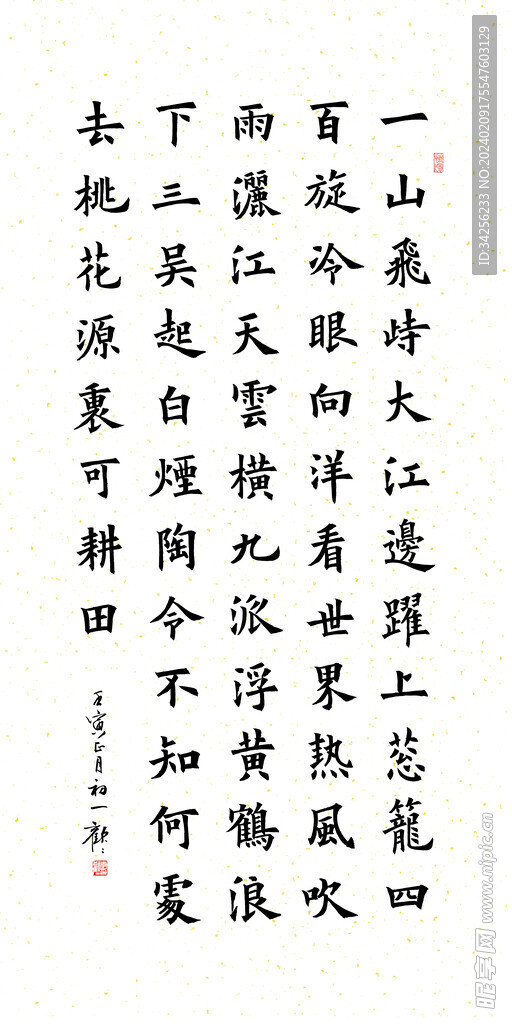 一山飛峙大江邊躍上葱籠四
百旋冷眼向洋看世界热風吹
雨灑江天雲橫九派浮黄鶴浪
下三吴起白煙陶令不知何處
去桃花源裏可耕田
壬寅正月初一
ID:34256233 NO:20240209175547603129
昵享网 www.nipic.cn